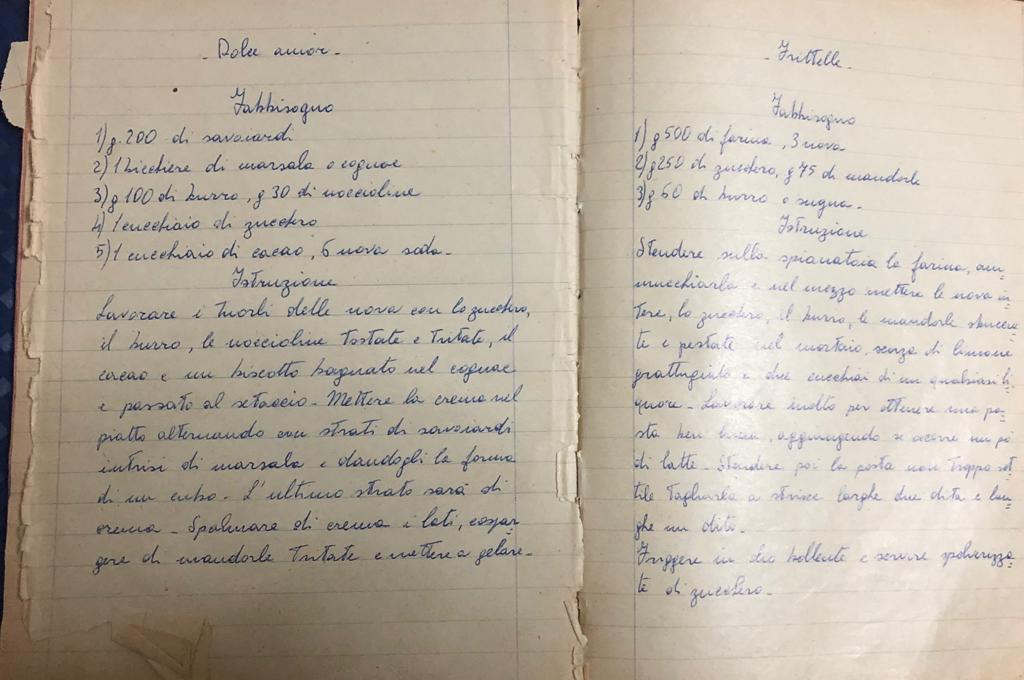 - Dolce amor -
Fabbisogno
1) g. 200 di savoiardi
2) 1 bicchiere di marsala o cognac
3) g 100 di burro, g 30 di noccioline
4) 1 cucchiaio di zucchero
5) 1 cucchiaio di cacao, 6 uova sode -
Istruzione
Lavorare i tuorli delle uova con lo zucchero,
il burro, le noccioline tostate e tritate, il
cacao e un biscotto bagnato nel cognac
e passato al setaccio - Mettere la crema nel
piatto alternando con strati di savoiardi
intrisi di marsala e dandogli la forma
di un cubo - L'ultimo strato sarà di
crema - Spalmare di crema i lati, cospar=
gere di mandorle tritate e mettere a gelare -
- Frittelle -
Fabbisogno
1) g 500 di farina, 3 uova
2) g 250 di zucchero, g 75 di mandorle
3) g 50 di burro o sugna -
Istruzione
Stendere sulla spianatoia la farina, am=
mucchiarla e nel mezzo mettere le uova in=
tere, lo zucchero, il burro, le mandorle sbuccia=
te e pestate nel mortaio, scorza di limone
grattugiato e due cucchiai di un qualsiasi li=
quore - Lavorare molto per ottenere una pa=
sta ben liscia, aggiungendo se occorre un pò
di latte - Stendere poi la pasta non troppo sot=
tile tagliarla a strisce larghe due dita e lun=
ghe un dito -
Friggere in olio bollente e servire spolverizza=
te di zucchero -